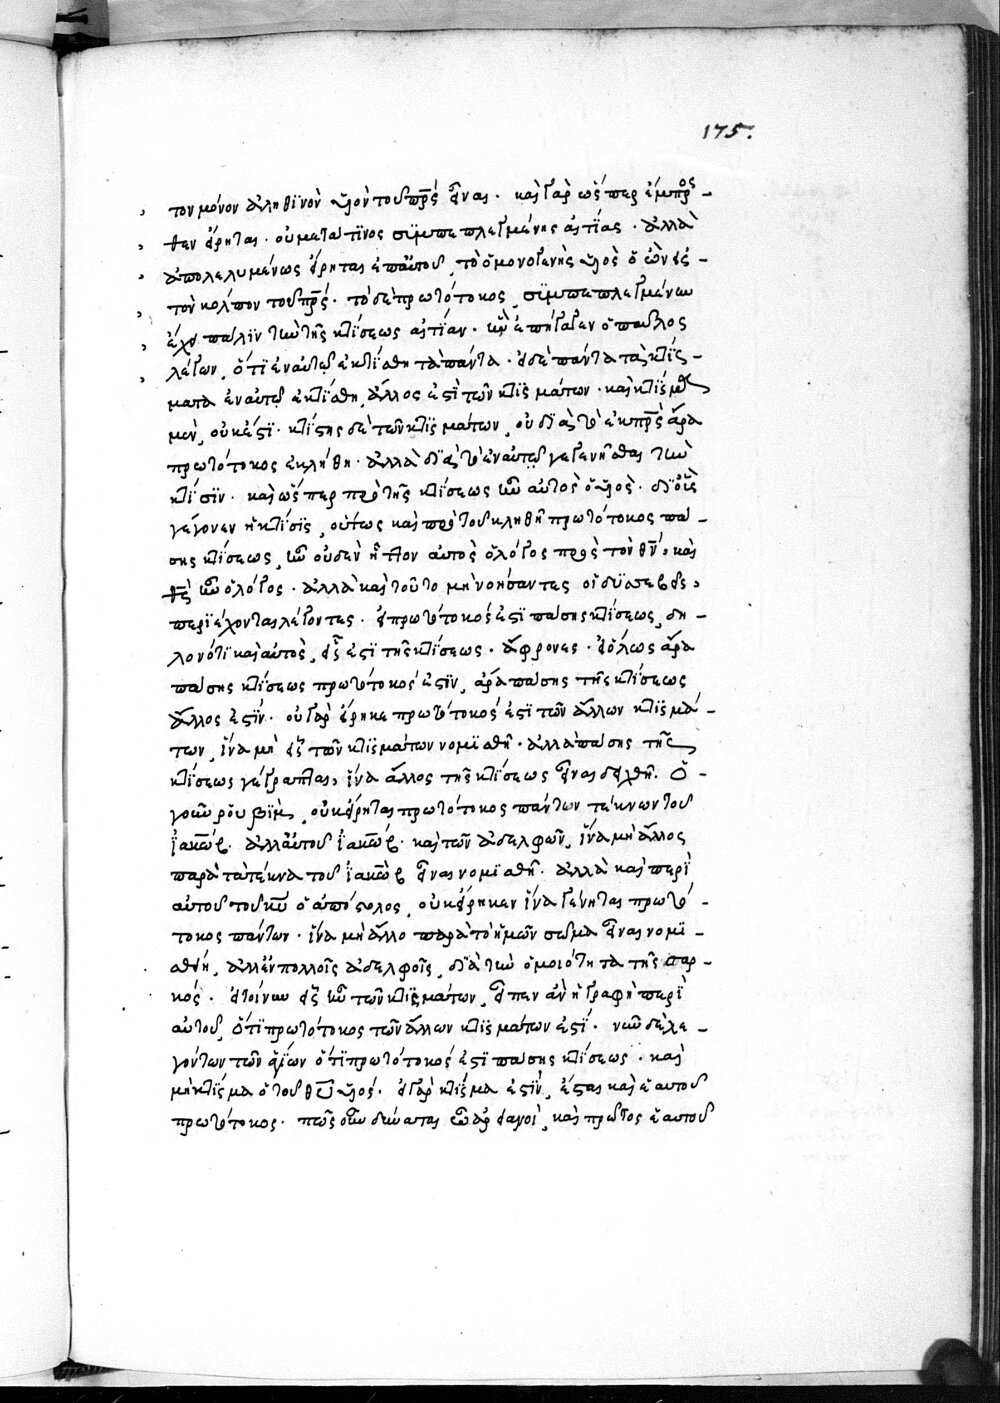 175.
τον μόνον ἀληθινὸν υἱὸν τοῦ πρς εἶναι. καὶ γὰρ ὥσπερ ἔμπροσ-
θεν εἴρηται. οὐ μετά τινος συμπεπλεγμένης αἰτίας. ἀλλὰ
ἀπολελυμένως εἴρηται ἐπ' αὐτοῦ, τὸ ὁ μονογενὴς υἱὸς ὁ ὢν εἰς
τὸν κόλπον τοῦ πρς. τὸ δὲ πρωτότοκος, συμπεπλεγμένην
ἔχει πάλιν τὴν τῆς κτίσεως αἰτίαν. ἣν ἐπήγαγεν ὁ παῦλος
λέγων, ὅτι ἐν αὐτῷ ἐκτίσθη τὰ πάντα. εἰ δὲ πάντα τὰ κτίσ-
ματα ἐν αὐτῷ ἐκτίσθη, ἄλλος ἐστὶ τῶν κτισμάτων. καὶ κτίσμα
μὲν, οὐκ ἔστι. κτίστης δὲ τῶν κτισμάτων, οὐ διὰ τὸ ἐκ πρς ἄρα
πρωτότοκος ἐκλήθη. ἀλλὰ διὰ τὸ ἐν αὐτῷ γεγενῆσθαι τὴν
κτίσιν. καὶ ὥσπερ πρὸ τῆς κτίσεως ἦν αὐτὸς ὁ υἱὸς. δι' οὗ
γέγονεν ἡ κτίσις, οὕτως καὶ πρὸ τοῦ κληθῆ πρωτότοκος πά-
σης κτίσεως, ἦν οὐδὲν ἧττον αὐτὸς ὁ λόγος πρὸς τὸν θν, καὶ
θς ἦν ὁ λόγος. ἀλλὰ καὶ τοῦτο μὴ νοήσαντες οἱ δυσσεβεῖς,
περιέχονται λέγοντες. εἰ πρωτότοκός ἐστι πάσης κτίσεως, δη-
λονότι καὶ αὐτὸς, εἷς ἐστι τῆς κτίσεως. ἄφρονες. εἰ ὅλως ἄρα
πάσης κτίσεως πρωτότοκός ἐστιν, ἄρα πάσης τῆς κτίσεως
ἄλλος ἐστίν. οὐ γὰρ εἴρηκε πρωτότοκός ἐστι τῶν ἄλλων κτισμά-
των, ἵνα μὴ εἷς τῶν κτισμάτων νομισθῆ. ἀλλὰ πάσης τῆς
κτίσεως γέγραπται, ἵνα ἄλλος τῆς κτίσεως εἶναι δειχθῆ. ὁ
γοῦν ρουβὶμ, οὐκ εἴρηται πρωτότοκος πάντων τέκνων τοῦ
ἰακώβ. ἀλλ' αὐτοῦ ἰακώβ. καὶ τῶν ἀδελφῶν, ἵνα μὴ ἄλλος
παρὰ τὰ τέκνα τοῦ ἰακὼβ εἶναι νομισθῆ. ἀλλὰ καὶ περὶ
αὐτοῦ τοῦ κυ ὁ ἀπόστολος, οὐκ εἴρηκεν ἵνα γένηται πρωτό-
τοκος πάντων. ἵνα μὴ ἄλλο παρὰ τὸ ἡμῶν σῶμα εἶναι νομι-
σθῇ, ἀλλ' ἐν πολλοῖς ἀδελφοῖς, διὰ τὴν ὁμοιότητα τῆς σαρ-
κός. εἰ τοίνυν εἷς ἦν τῶν κτισμάτων, εἶπεν ἂν ἡ γραφὴ περὶ
αὐτοῦ, ὅτι πρωτότοκος τῶν ἄλλων κτισμάτων ἐστί. νῦν δὲ λε-
γόντων τῶν ἁγίων ὅτι πρωτότοκός ἐστι πάσης κτίσεως. καὶ
μὴ κτίσμα ὁ τοῦ θυ υἱός. εἰ γὰρ κτίσμα ἐστὶν, ἔσται καὶ ἑαυτοῦ
πρωτότοκος. πῶς οὖν δύναται ὦ ἀρειανοὶ, καὶ πρῶτος ἑαυτοῦ